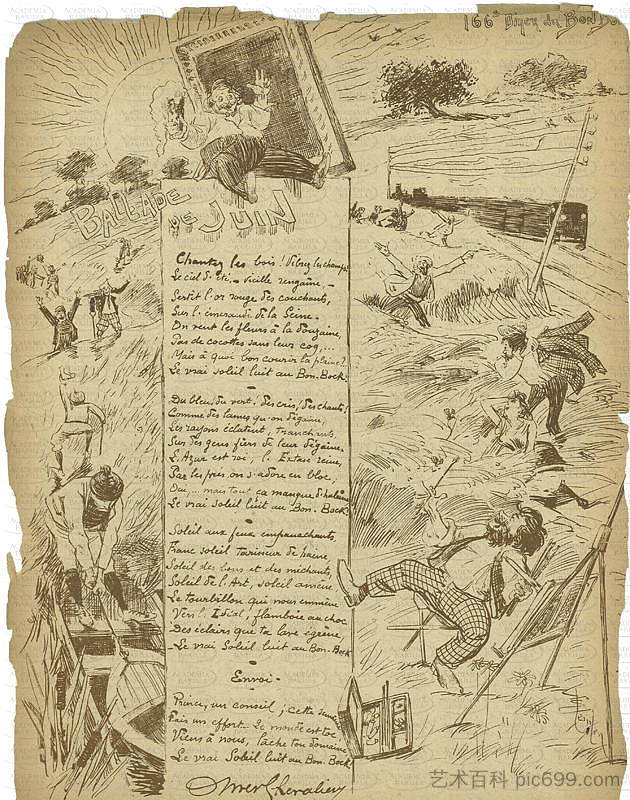 166e Diner du Bon Bo
BALLADE
DE JUIN
Chantez les bois! Vibrez les champs!
Le ciel d'été, - vieille rengaine, -
Sertit l'or rouge des couchants,
Sur l'émeraude de la Seine.
On vend les fleurs à la douzaine,
Pas de cocottes sans leur coq...
Mais à quoi bon courir la plaine?
Le vrai soleil luit au Bon-Bock.
Du bleu, du vert, des cris, des chants!
Comme des lames qu'on dégaine,
Les rayons éclatent, tranchants,
Sur des gens fiers de leur dégaine.
L'Azur est roi, l'Extase reine,
Par les prés on s'adore en bloc,
Oui,... mais tout ça manque d'haleine
Le vrai soleil luit au Bon-Bock.
Soleil aux feux empanachants,
Franc soleil tarisseur de haine
Soleil des bons et des méchants,
Soleil de l'Art, soleil amène
Le tourbillon qui nous emmène
Vers l'Idéal, flamboie au choc
Des éclairs que ta lave égrène,
Le vrai Soleil luit au Bon-Bock
Envoi -
Prince, un conseil, cette
Fais un effort. Le monde est toc
Viens à nous, lâche ton domaine
Le vrai Soleil luit au Bon-Bock.
Chevalier
艺术百科 pic699.com